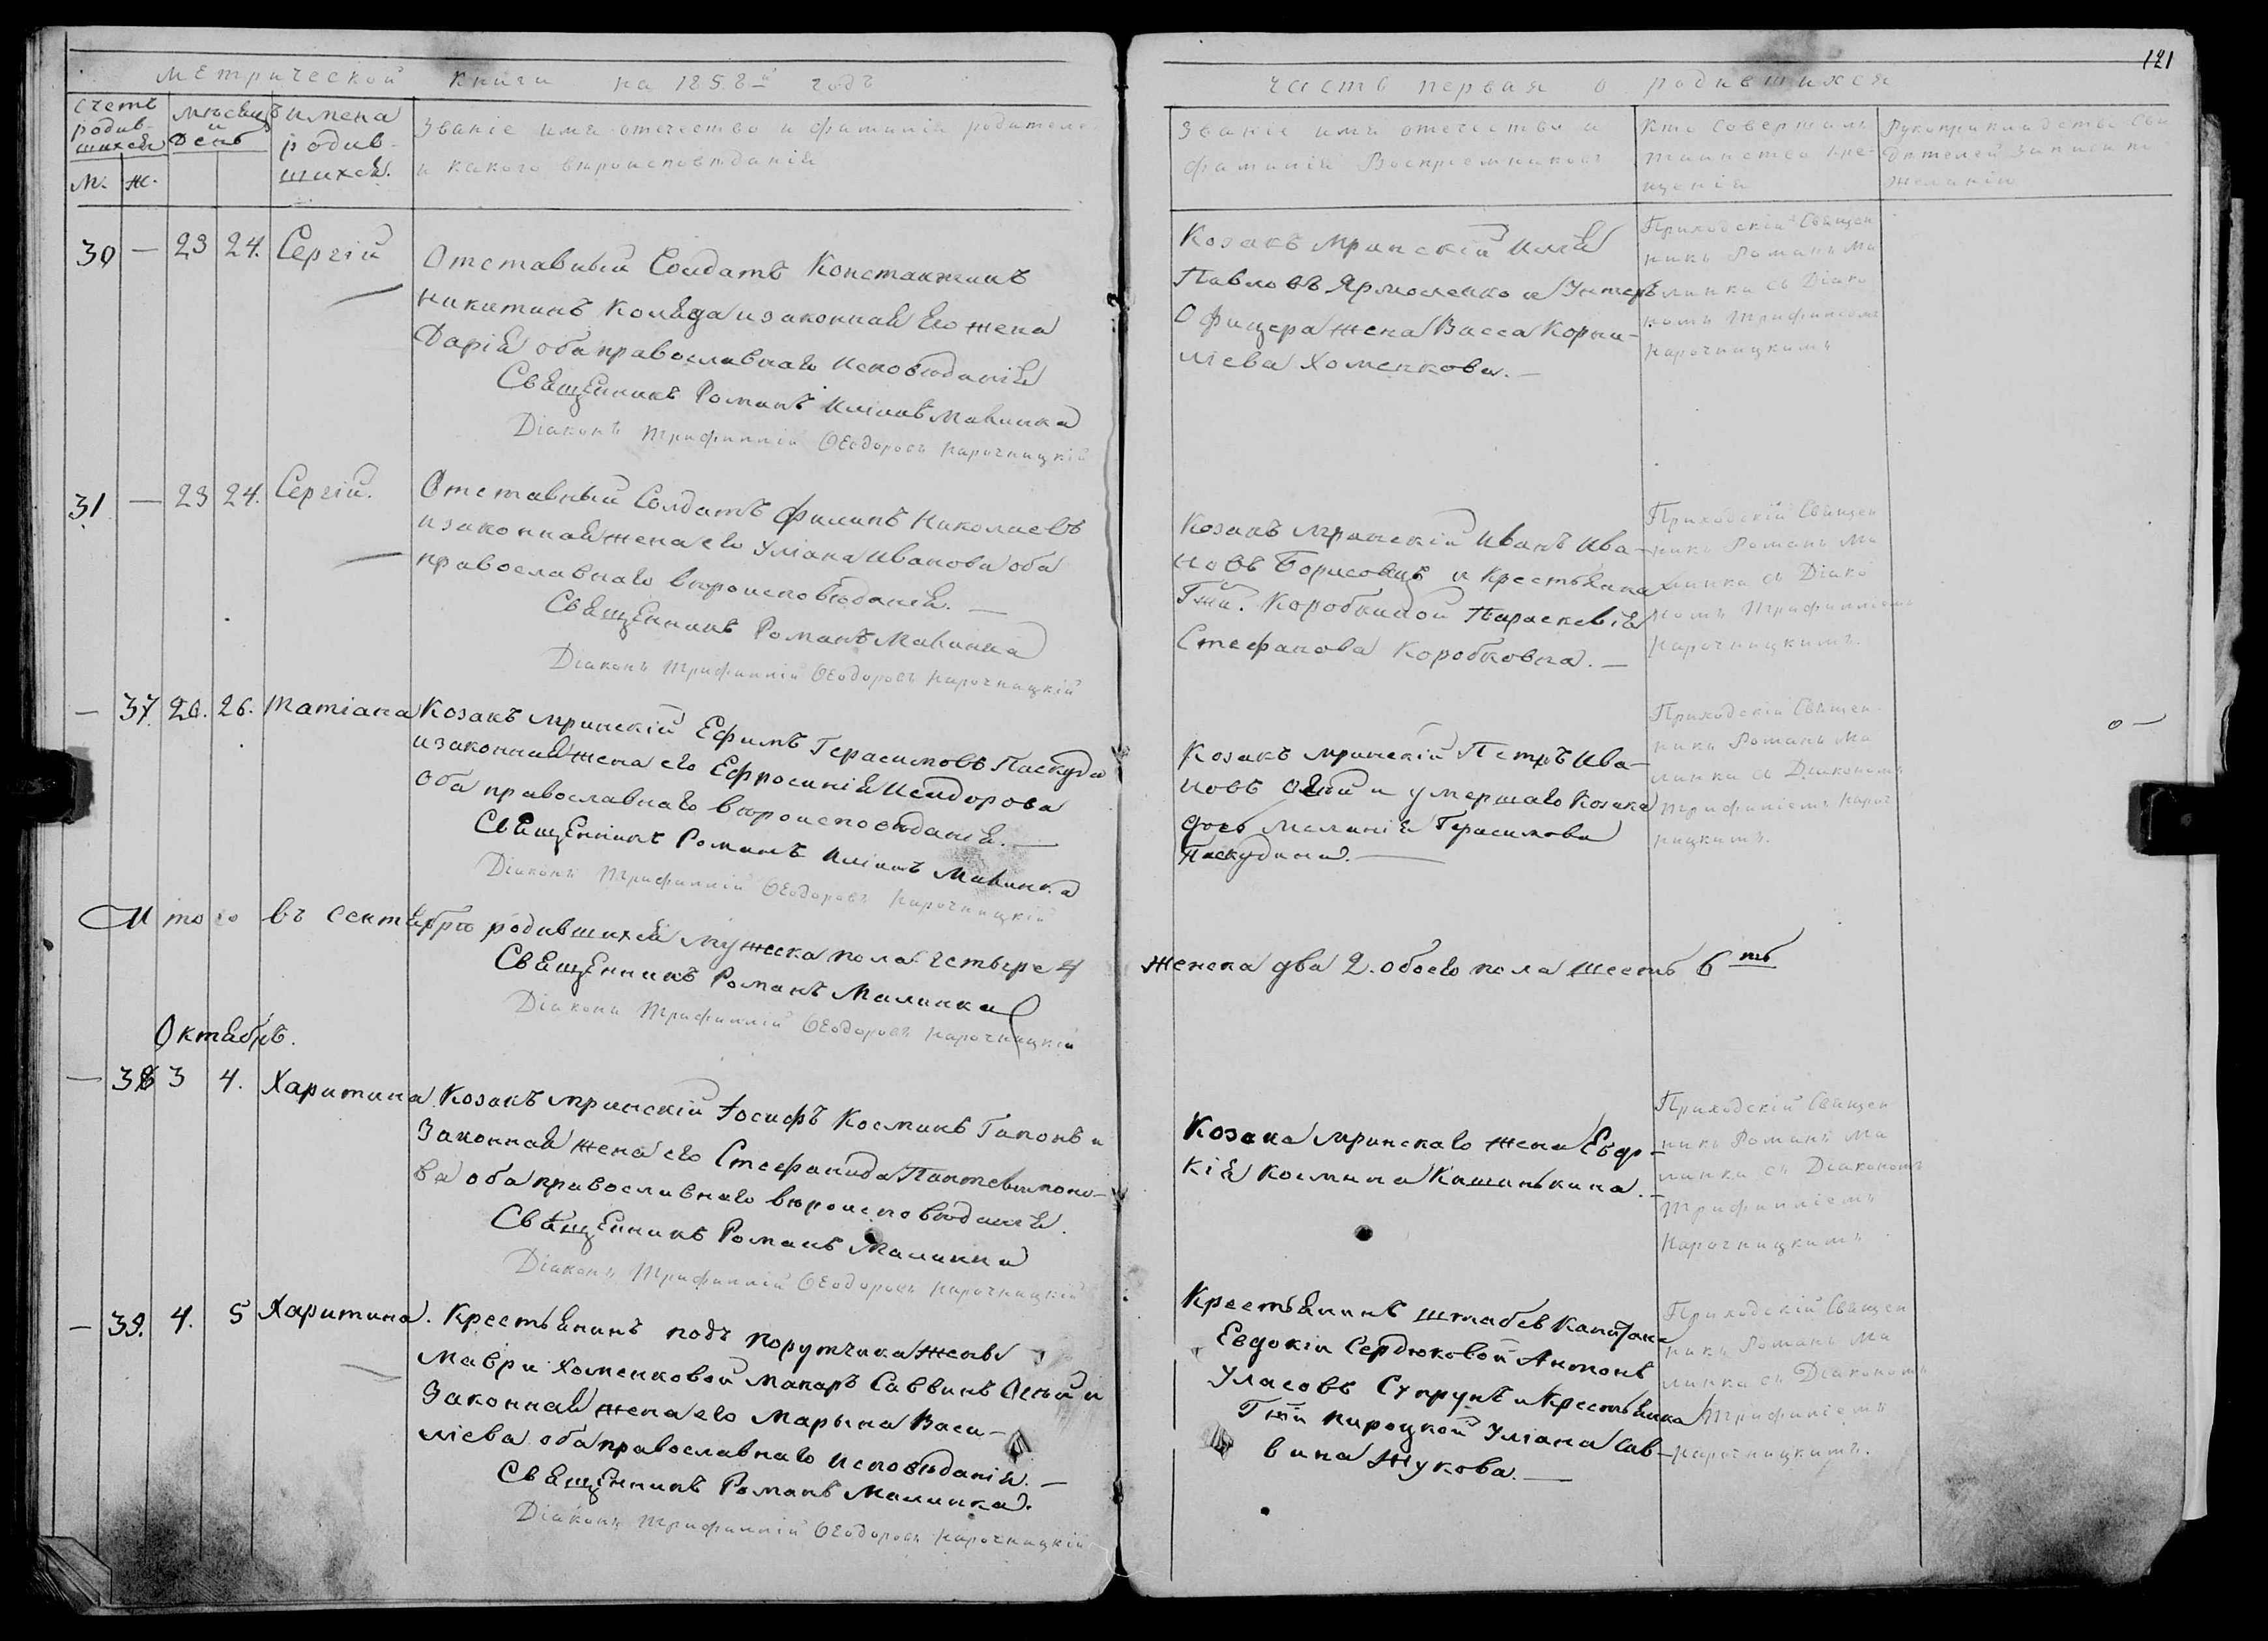 121
Метрической книги на 1858й годъ
Часть первая о родившихся
Счетъ
родив-
шихся
М. Ж.
Мѣсяцъ
и
День
Имена
родив-
шихся.
Званіе имя отечество и фамилія родителе
и какого вѣроисповѣданія
Званіе имя отечество и
фамилія Воспріемниковъ
Кто Совершалъ
таинство кре-
щенія
Рукоприкладство Сви
дѣтелей записи по
желанію
30 — 23 24. Сергій
Отставный Солдатъ Константинъ
Никитинъ Коляда и законная его жена
Дарія оба православнаго исповѣданія
Священникъ Романъ Иліинъ Малинка
Діаконъ Трифиллій Ѳеодоровъ Нарочницкій
Козакъ Мринскій Илія
Павловъ Ярмоленко и Унтеръ
Офицера жена Васса Корни-
ліева Хоменкова. —
Приходскій Священ
никъ Романъ Ма
линка съ Діако
номъ Трифилліемъ
Нарочницкимъ
31 — 23 24. Сергій.
Отставный Солдатъ Филипъ Николаевъ
и законная жена его Уліана Иванова оба
православнаго вѣроисповѣданія. —
Священникъ Романъ Малинка
Діаконъ Трифиллій Ѳеодоровъ Нарочницкій
Козакъ Мринскій Иванъ Ива-
новъ Борисовецъ и крестьянка
Гжи. Коробкиной Параскевія
Стефанова Коробковна. —
Приходскій Священ
никъ Романъ Ма
линка съ Діако
номъ Трифилліемъ
Нарочницкимъ.
— 37. 26. 26. Татіана
Козакъ Мринскій Ефимъ Герасимовъ Паскуда
и законная жена его Ефросинія Исидорова
оба православнаго вѣроисповѣданія. —
Священникъ Романъ Иліинъ Малинка
Діаконъ Трифиллій Ѳеодоровъ Нарочницкій
Козакъ Мринскій Петръ Ива-
новъ и умершаго Козака
дочь Меланія Герасимова
Паскудина. —
Приходскій Священ-
никъ Романъ Ма
линка съ Діакономъ
Трифиліемъ Нароч
ницкимъ.
Итого въ сентябрѣ родившихся мужеска пола четыре 4
женска два 2. обоего пола шесть 6ть
Священникъ Романъ Малинка
Діаконъ Трифиллій Ѳеодоровъ Нарочницкій
Октябрь.
— 38 3 4. Харитина
Козакъ Мринскій Іосифъ Косминъ Гапонъ и
Законная жена его Стефанида Пантелимоно-
ва оба православнаго вѣроисповѣданія.
Священникъ Романъ Малинка
Діаконъ Трифиллій Ѳеодоровъ Нарочницкій
Козака Мринскаго жена Евдо-
кія Космина Кашинькина. —
Приходскій Священ
никъ Романъ Ма
линка съ Діакономъ
Трифилліемъ
Нарочницкимъ
— 39. 4. 5 Харитина.
Крестьянинъ подъ порутчика жены
Маври Хоменковой Макаръ Саввинъ и
Законная жена его Марьяна Васи-
ліева оба православнаго исповѣданія. —
Священникъ Романъ Малинка.
Діаконъ Трифиллій Ѳеодоровъ Нарочницкій
Крестьянинъ штабсъ Капитана
Евдокіи Сердюковой Антонъ
Уласовъ Супрунъ и Крестьянка
Гжи Кироцкой Уліана Сав-
вина Жукова. —
Приходскій Священ
никъ Романъ Ма
линка съ Діакономъ
Трифиліемъ
Нарочницкимъ.